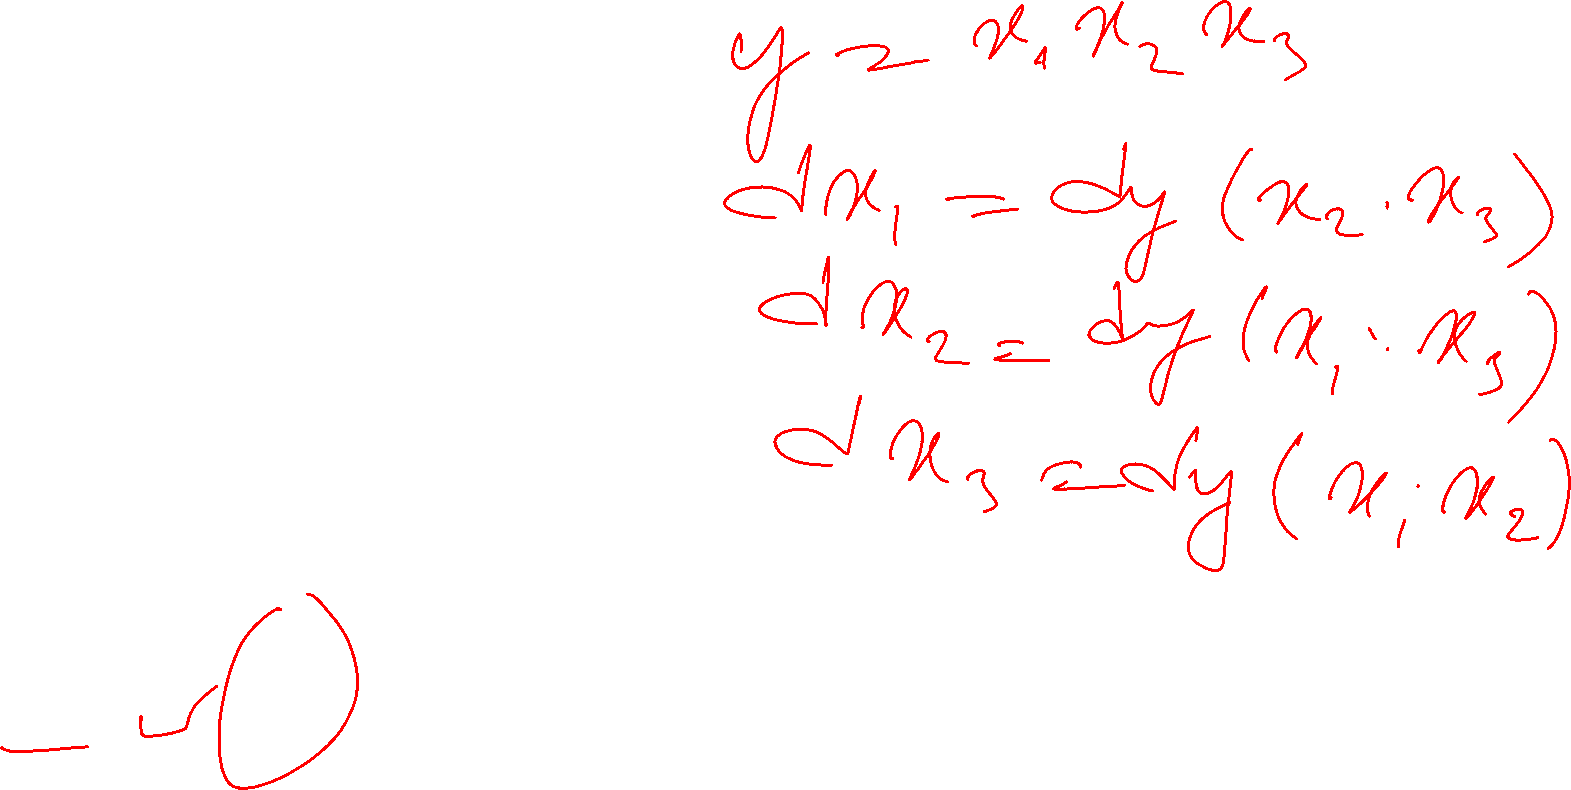 y = x₁ x₂ x₃
dx₁ = dy (x₂ · x₃)
dx₂ = dy (x₁ · x₃)
dx₃ = dy (x₁ · x₂)